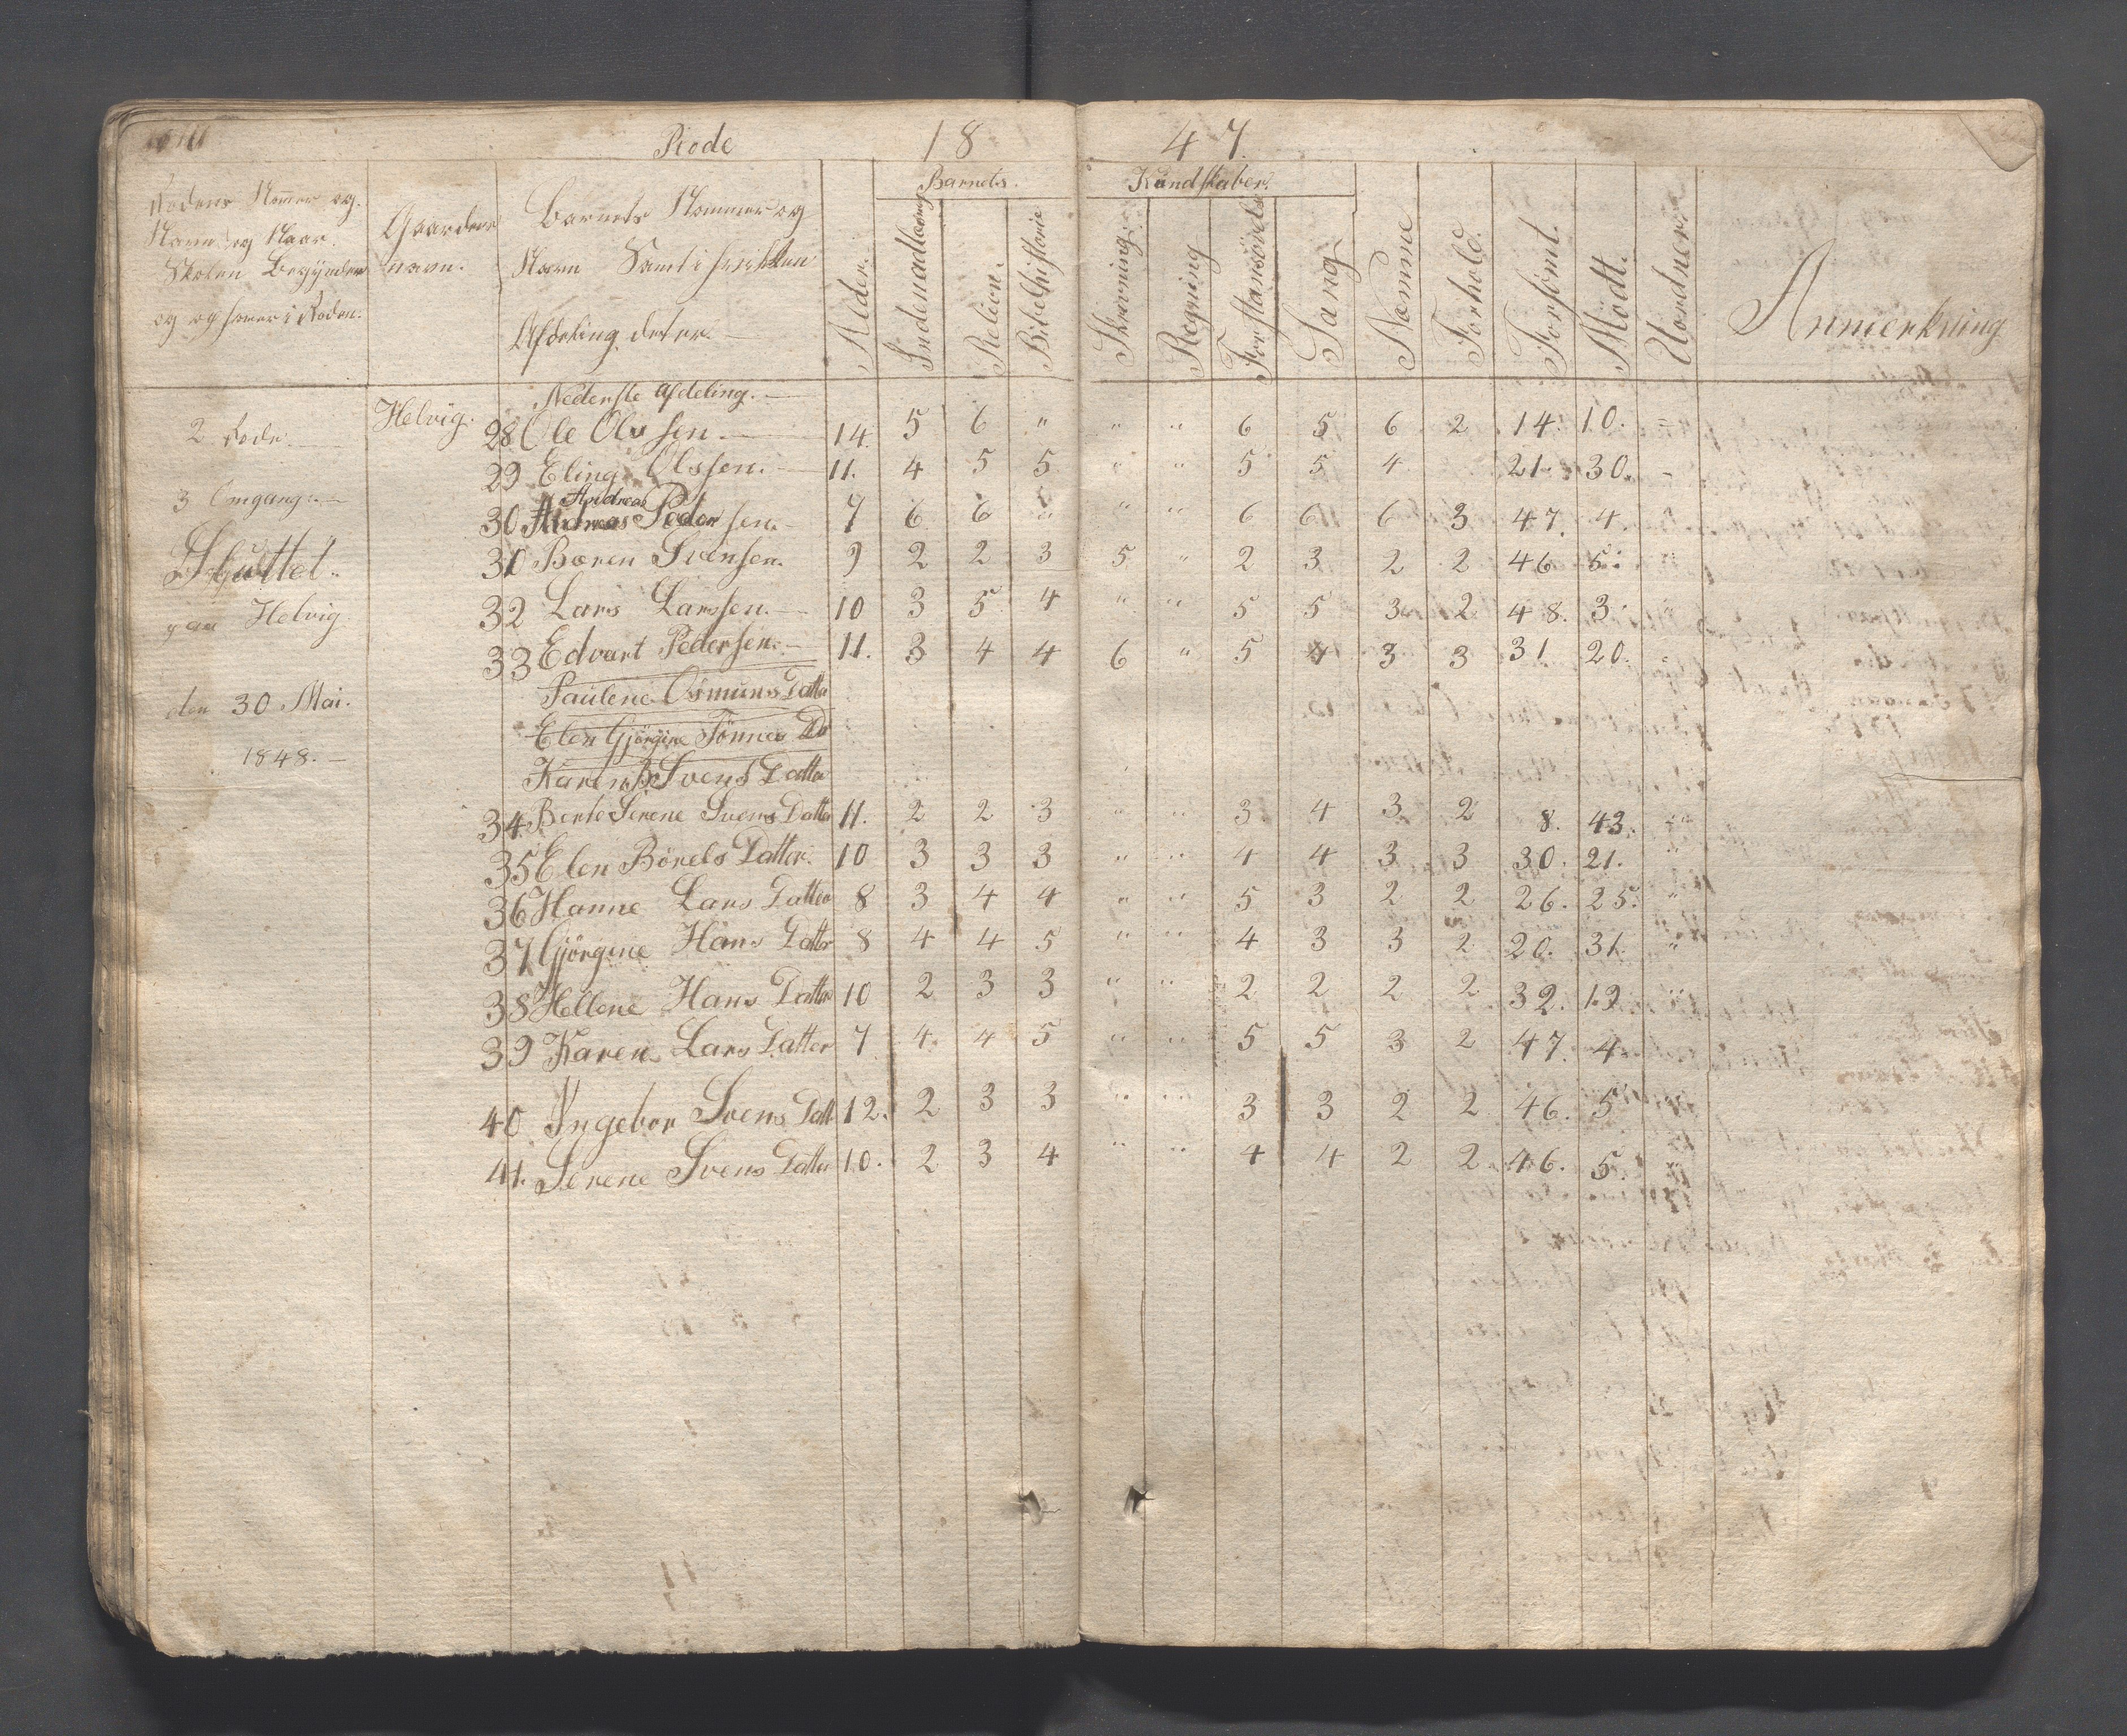 Rode 18 47.
Barnets. Kundskaber.
Rodens Nomer og Navn og Naar Skolen Begynder og ophører i Roden.
Gaardens navn.
Barnets Nommer og Navn Samt i hvilken Afdeling det er.
Alder.
Indenadlæsning
Releion.
Bibelhistorie
Skrivning.
Regning
Forstansövelse
Sang
Næmme
Forhold.
Forsömt.
Mödt.
Uordner.
Anmerkning
Nederste Afdeling.
2 Rode. Helvig. 28 Ole Olssen. 14. 5 6 " " " 6 5 6 2 14. 10. "
29 Eling Olssen. 11. 4 5 5 " " 5 5 4 21. 30.
3 Omgang.
Andreas
30 Andreas Pedersen. 7 6 6 " " " 6 6 6 3 47. 4
Sluttet.
31 Bæren Svensen. 9 2 2 3 5 " 2 3 2 2 46 5.
paa Helvig
32 Lars Larssen. 10 3 5 4 " " 5 5 3 2 48. 3.
33 Edvart Pedersen. 11. 3 4 4 6 " 5 4 3 3 31 20.
den 30 Mai.
Paulene Osmuns Datter
Elen Gjörgine Tönnes Dr
1848.
Karen B Svens Datter
34 Berte Serene Svens Datter 11. 2 2 3 " " 3 4 3 2 8. 43. "
35 Elen Börels Datter. 10 3 3 3 " " 4 4 3 3 30. 21. "
36 Hanne Lars Datter 8 3 4 4 " " 5 3 2 2 26. 25. "
37 Gjörgine Hans Datter 8 4 4 5 " " 4 3 3 2 20. 31. "
38 Hellene Hans Datter 10 2 3 3 " " 2 2 2 2 32. 19 "
39 Karen Lars Datter 7 4 4 5 " " 5 5 3 2 47. 4
40 Ingebor Svens Datt 12. 2 3 3 " " 3 3 2 2 46. 5
41. Serene Svens Datter 10. 2 3 4 " " 4 4 2 2 46. 5. "